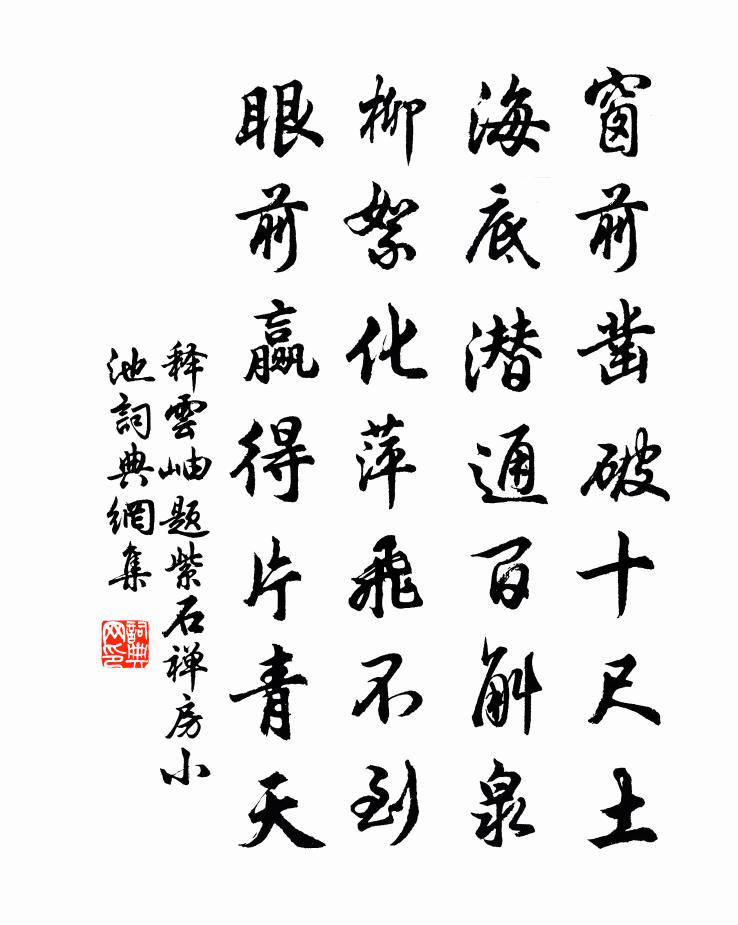 窗前凿破十尺土
海底潜通百斛泉
柳絮化萍飛不到
眼前贏得片青天
释雲岫题紫石禅房小
池詞典網集
詞典網印